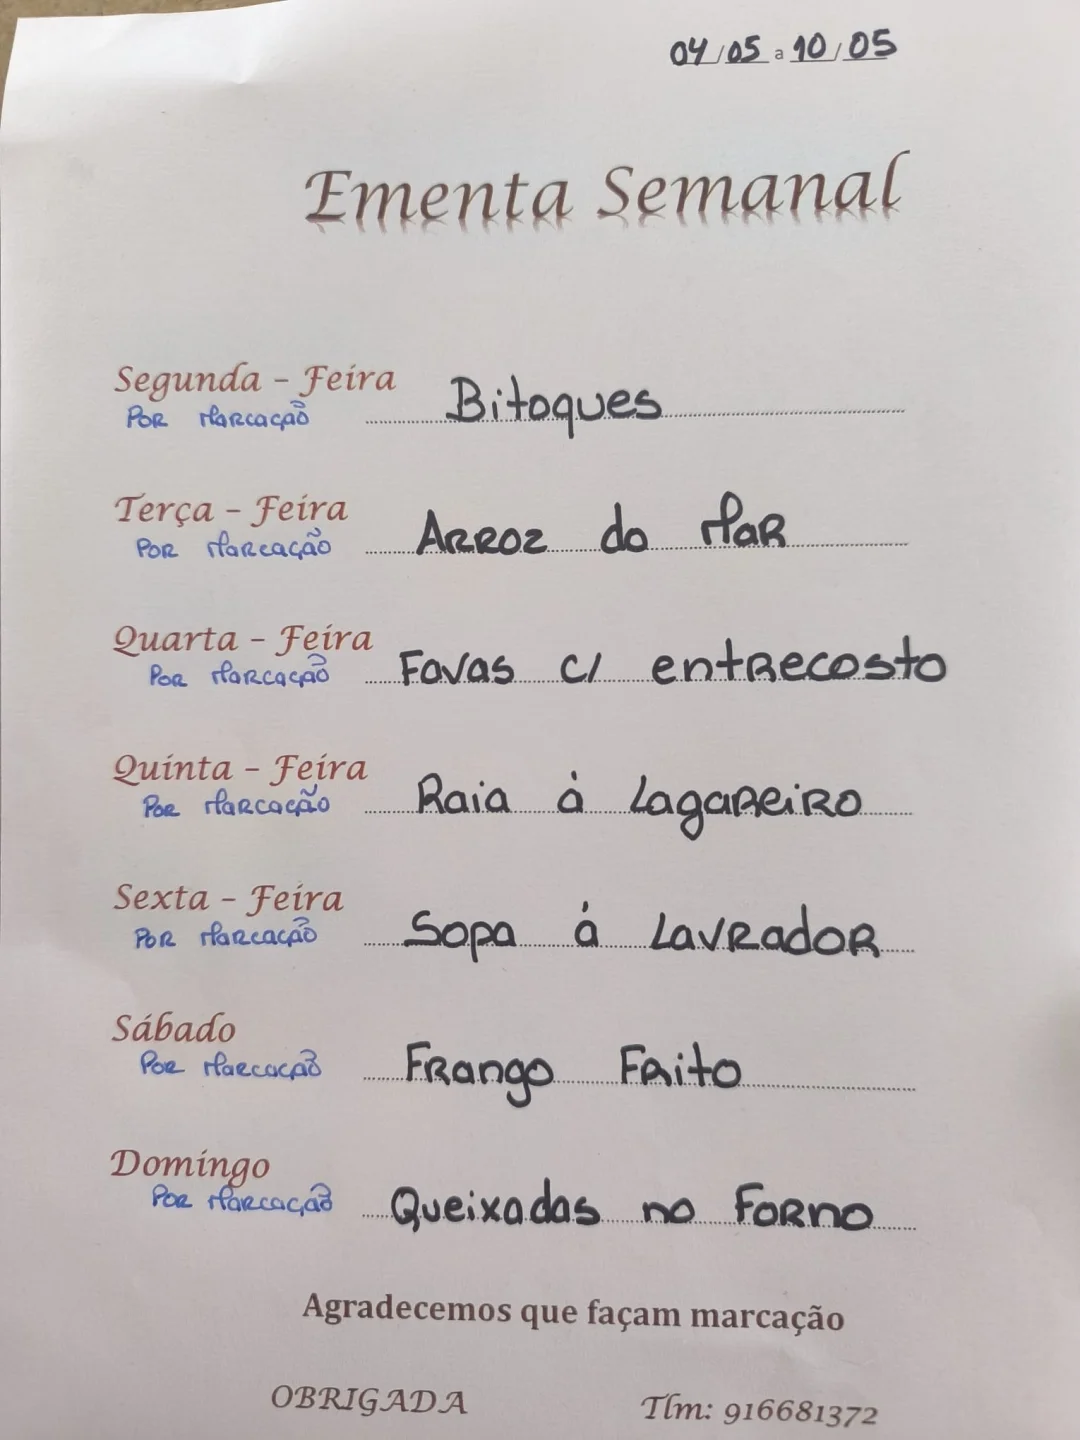 04/05 a 10/05
Ementa Semanal
Segunda - Feira Bitoques
Por Marcação
Terça - Feira
Por Marcação Arroz do Mar
Quarta - Feira
Por Marcação Favas c/ entrecosto
Quinta - Feira
Por Marcação Raia à Lagareiro
Sexta - Feira
Por Marcação Sopa á Lavrador
Sábado
Por Marcação Frango Frito
Domingo
Por Marcação Queixadas no Forno
Agradecemos que façam marcação
OBRIGADA Tlm: 916681372